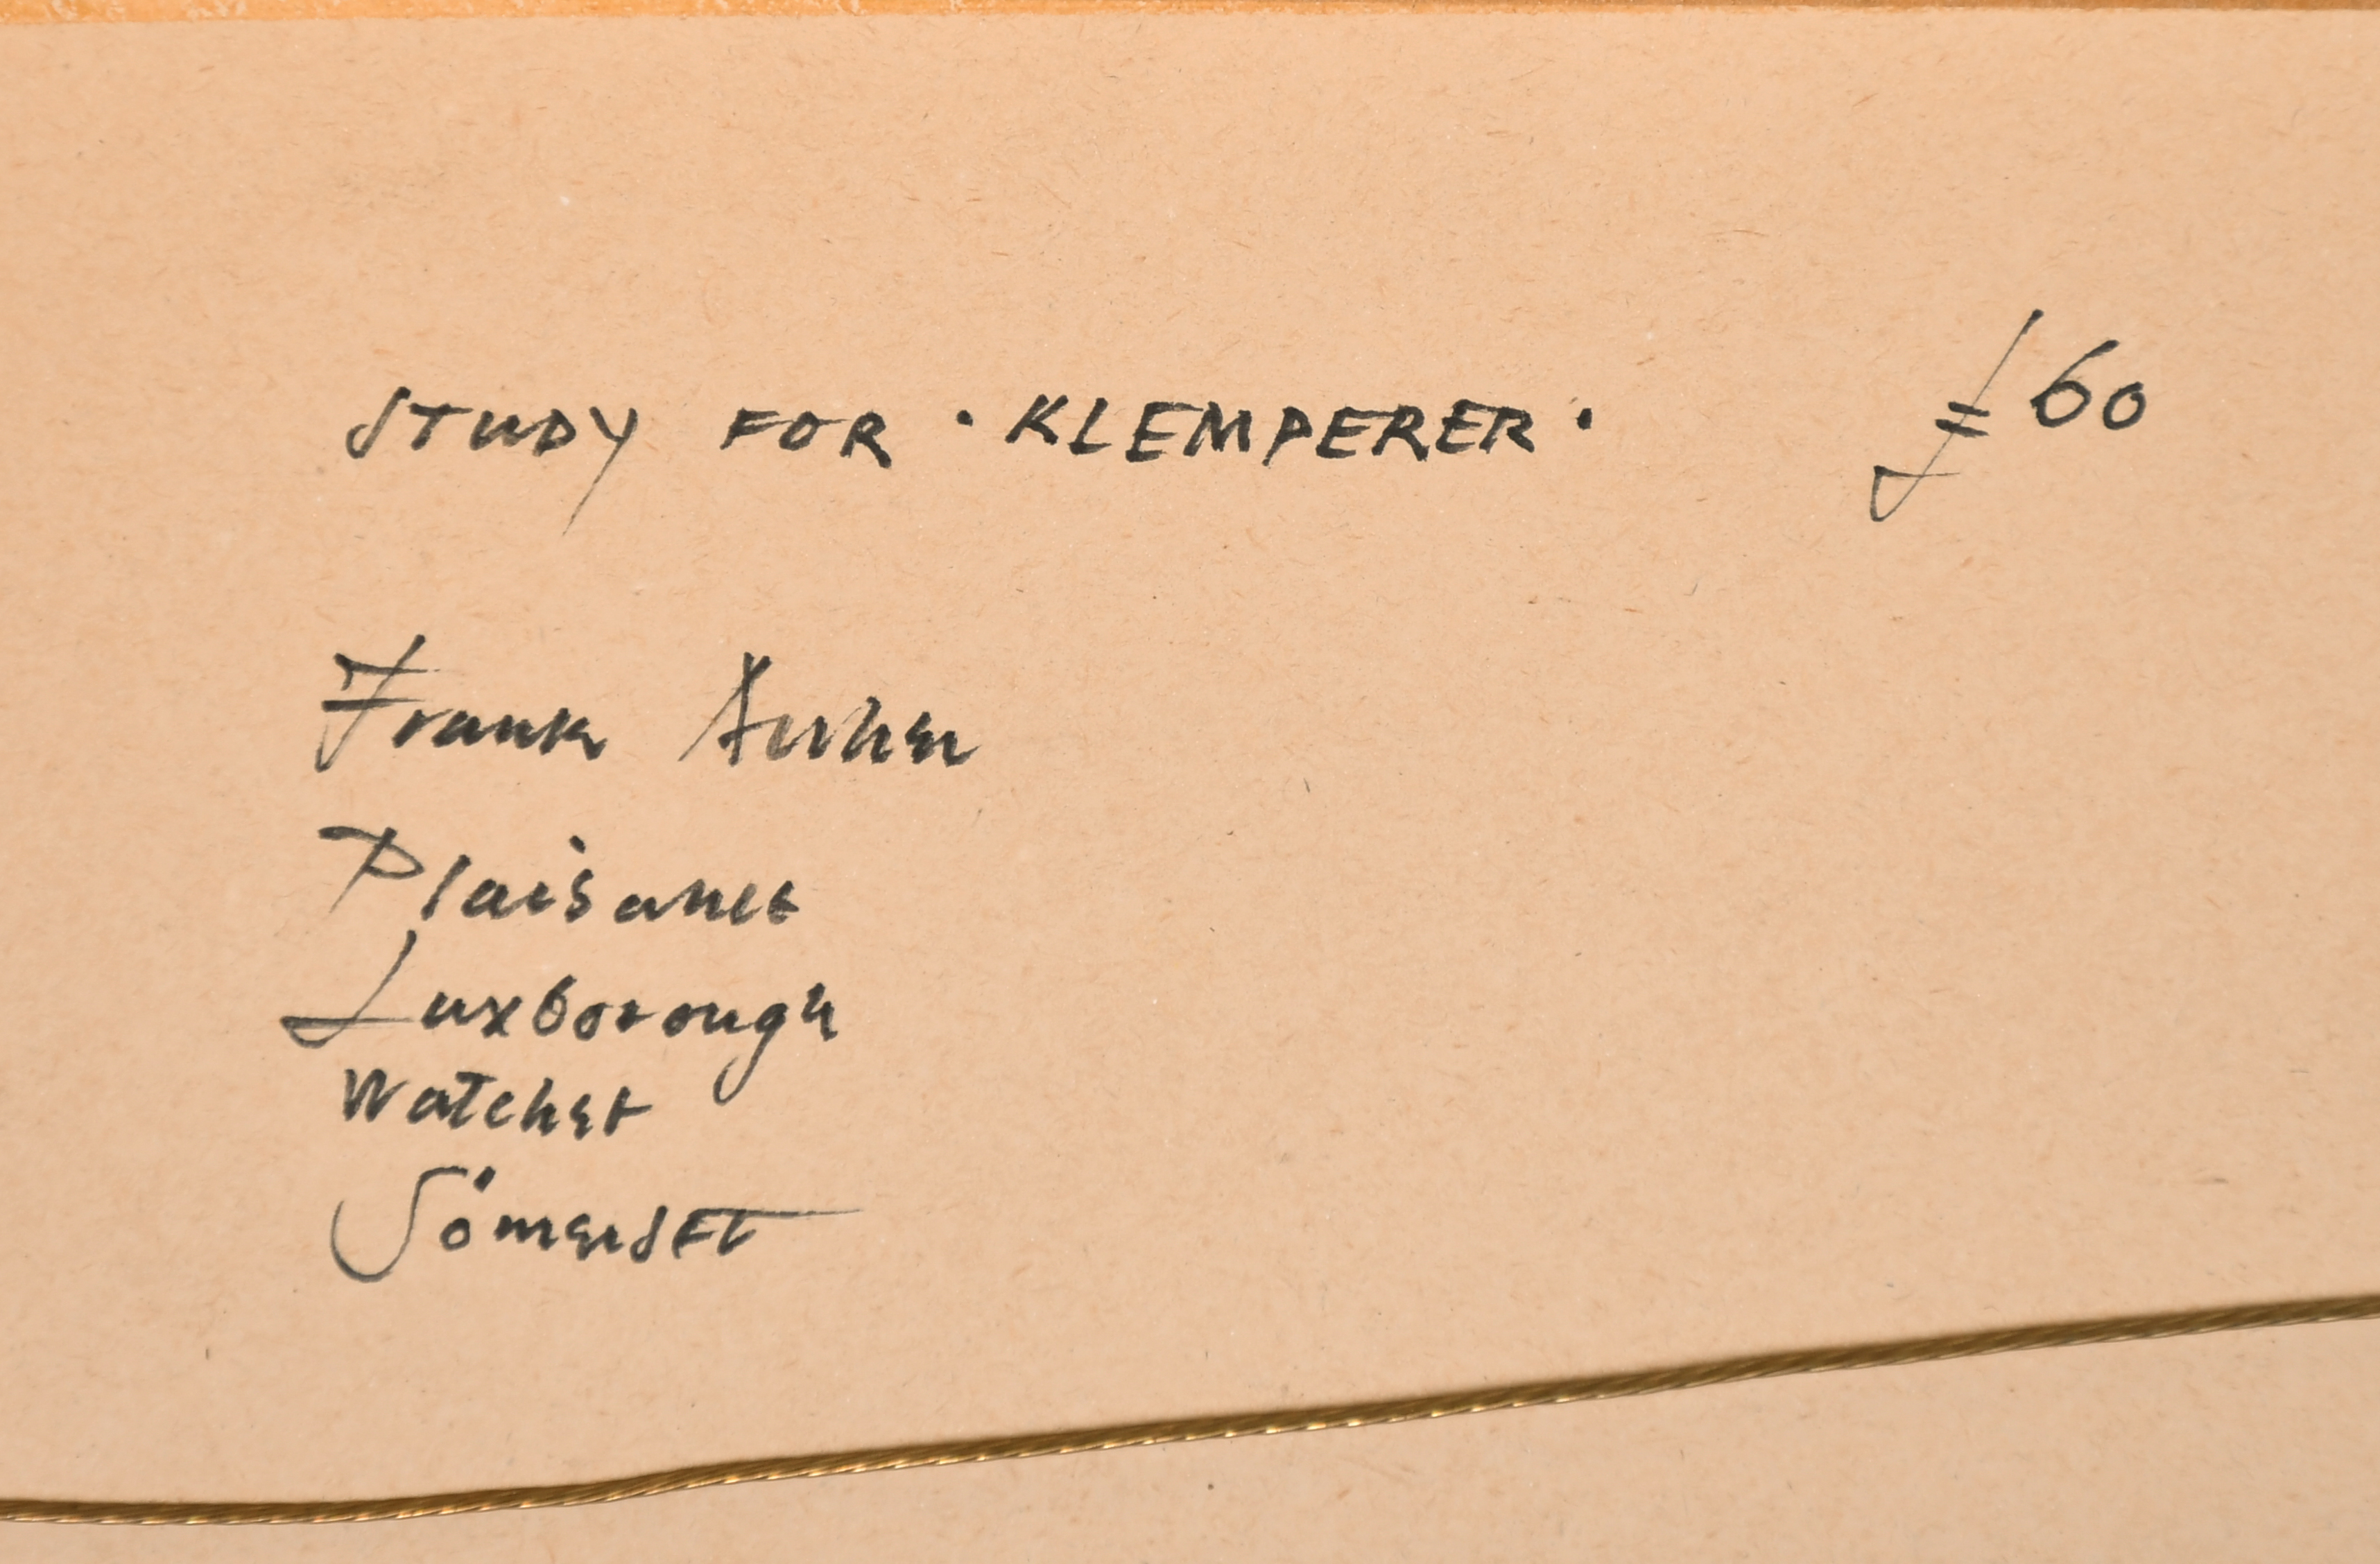 STUDY FOR · KLEMPERER · £60
Frank Archer
Plaisance
Luxborough
Watchet
Somerset